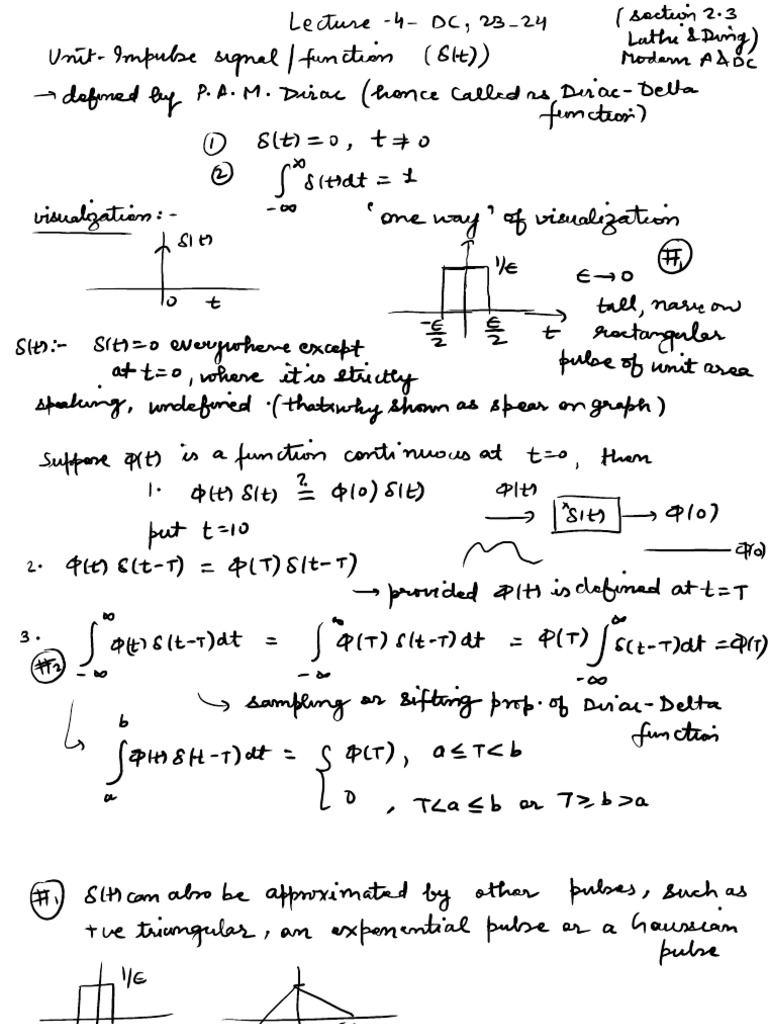 Lecture -4- DC, 23-24
(Section 2.3
Lathi & Ding)
Modern A&DC
Unit-Impulse signal/function (δ(t))
→ defined by P.A.M. Dirac (hence called as Dirac-Delta
function)
① δ(t) = 0, t ≠ 0
② ∫_{-∞}^{∞} δ(t)dt = 1
visualization:-
'one way' of visualization
δ(t)
0 t
1/ϵ
-ϵ/2 ϵ/2 t
#1
ϵ → 0
tall, narrow
rectangular
pulse of unit area
δ(t):- δ(t)=0 everywhere except
at t=0, where it is strictly
speaking, undefined. (thatswhy shown as spear on graph)
Suppose φ(t) is a function continuous at t=0, then
1. φ(t) δ(t) ?= φ(0) δ(t)
φ(t)
→ xδ(t) → φ(0)
put t=10
φ(0)
2. φ(t) δ(t-T) = φ(T) δ(t-T)
→ provided φ(t) is defined at t=T
3. ∫_{-∞}^{∞} φ(t) δ(t-T)dt = ∫_{-∞}^{∞} φ(T) δ(t-T)dt = φ(T) ∫_{-∞}^{∞} δ(t-T)dt = φ(T)
#2
↳ sampling or sifting prop. of Dirac-Delta
function
↳ ∫_{a}^{b} φ(t) δ(t-T)dt = { φ(T), a ≤ T < b
0, T<a ≤ b or T ≥ b > a
#1 δ(t) can also be approximated by other pulses, such as
+ve triangular, an exponential pulse or a Gaussian
pulse
1/ϵ